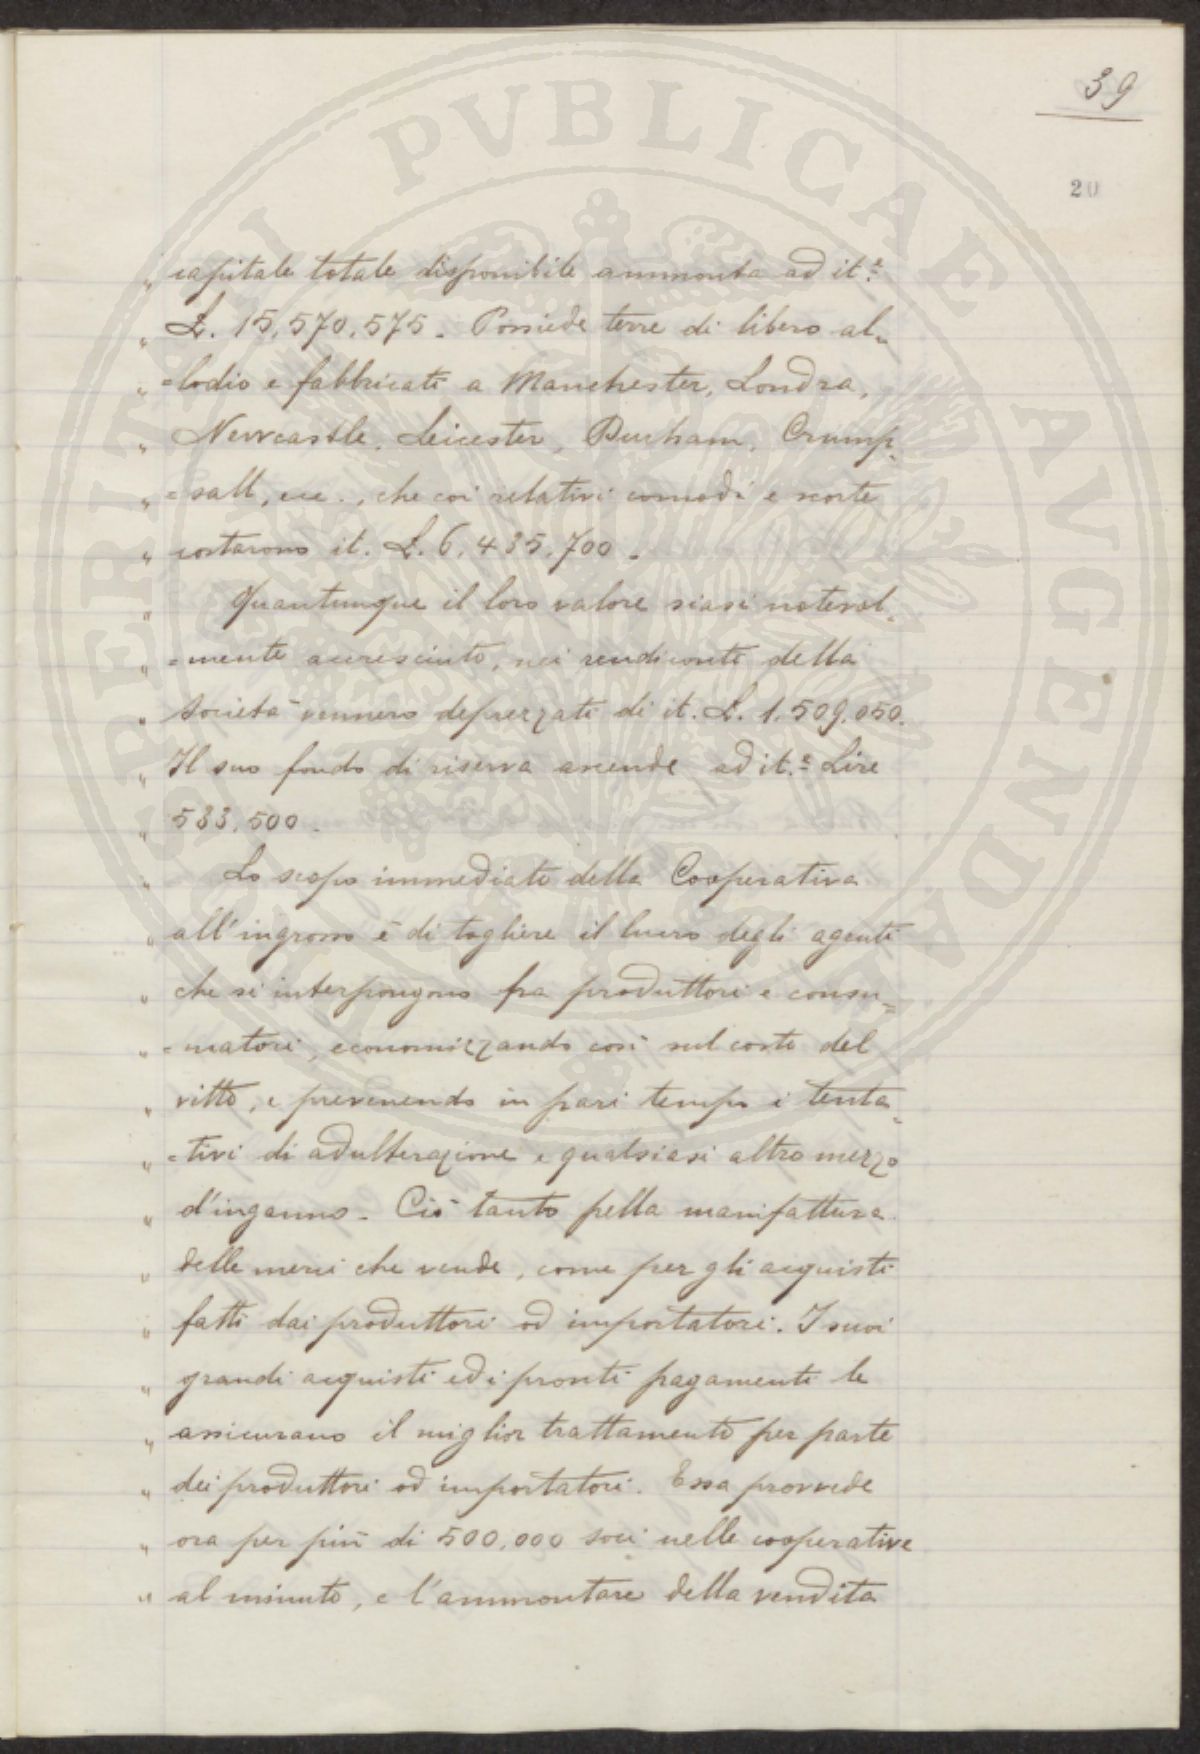 39
20
„ capitale totale disponibile ammonta ad it.e
„ L. 15,570,575. Possiede terre di libero al„
„ =lodio e fabbricati a Manchester, Londra,
„ Newcastle, Leicester, Durham, Crump„
„ =sall, ecc., che coi relativi comodi e scorte
„ costarono it. L. 6,435,700.
„ Quantunque il loro valore siasi notevol„
„ =mente accresciuto, nei rendiconti della
„ Società vennero deprezzati di it. L. 1.509.050.
„ Il suo fondo di riserva ascende ad it.e Lire
„ 533,500.
„ Lo scopo immediato della Cooperativa
„ all'ingrosso è di togliere il lucro degli agenti
„ che si interpongono fra produttori e consu„
„ =matori, economizzando così sul costo del
„ vitto, e prevenendo in pari tempo i tenta„
„ =tivi di adulterazione e qualsiasi altro mezzo
„ d'inganno. Ciò tanto pella manifattura
„ delle merci che vende, come per gli acquisti
„ fatti dai produttori od importatori. I suoi
„ grandi acquisti ed i pronti pagamenti le
„ assicurano il miglior trattamento per parte
„ dei produttori od importatori. Essa provvede
„ ora per più di 500,000 soci nelle cooperative
„ al minuto, e l'ammontare della vendita
PROSPERITATI PVBLICAE AVGENDAE